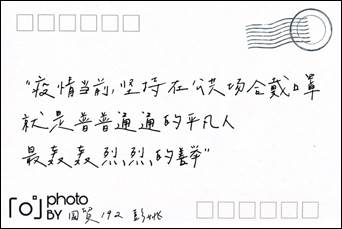 “疫情当前,坚持在公共场合戴口罩
就是普普通通的平凡人
最轰轰烈烈的善举”
「o」photo
BY 国贸192 彭